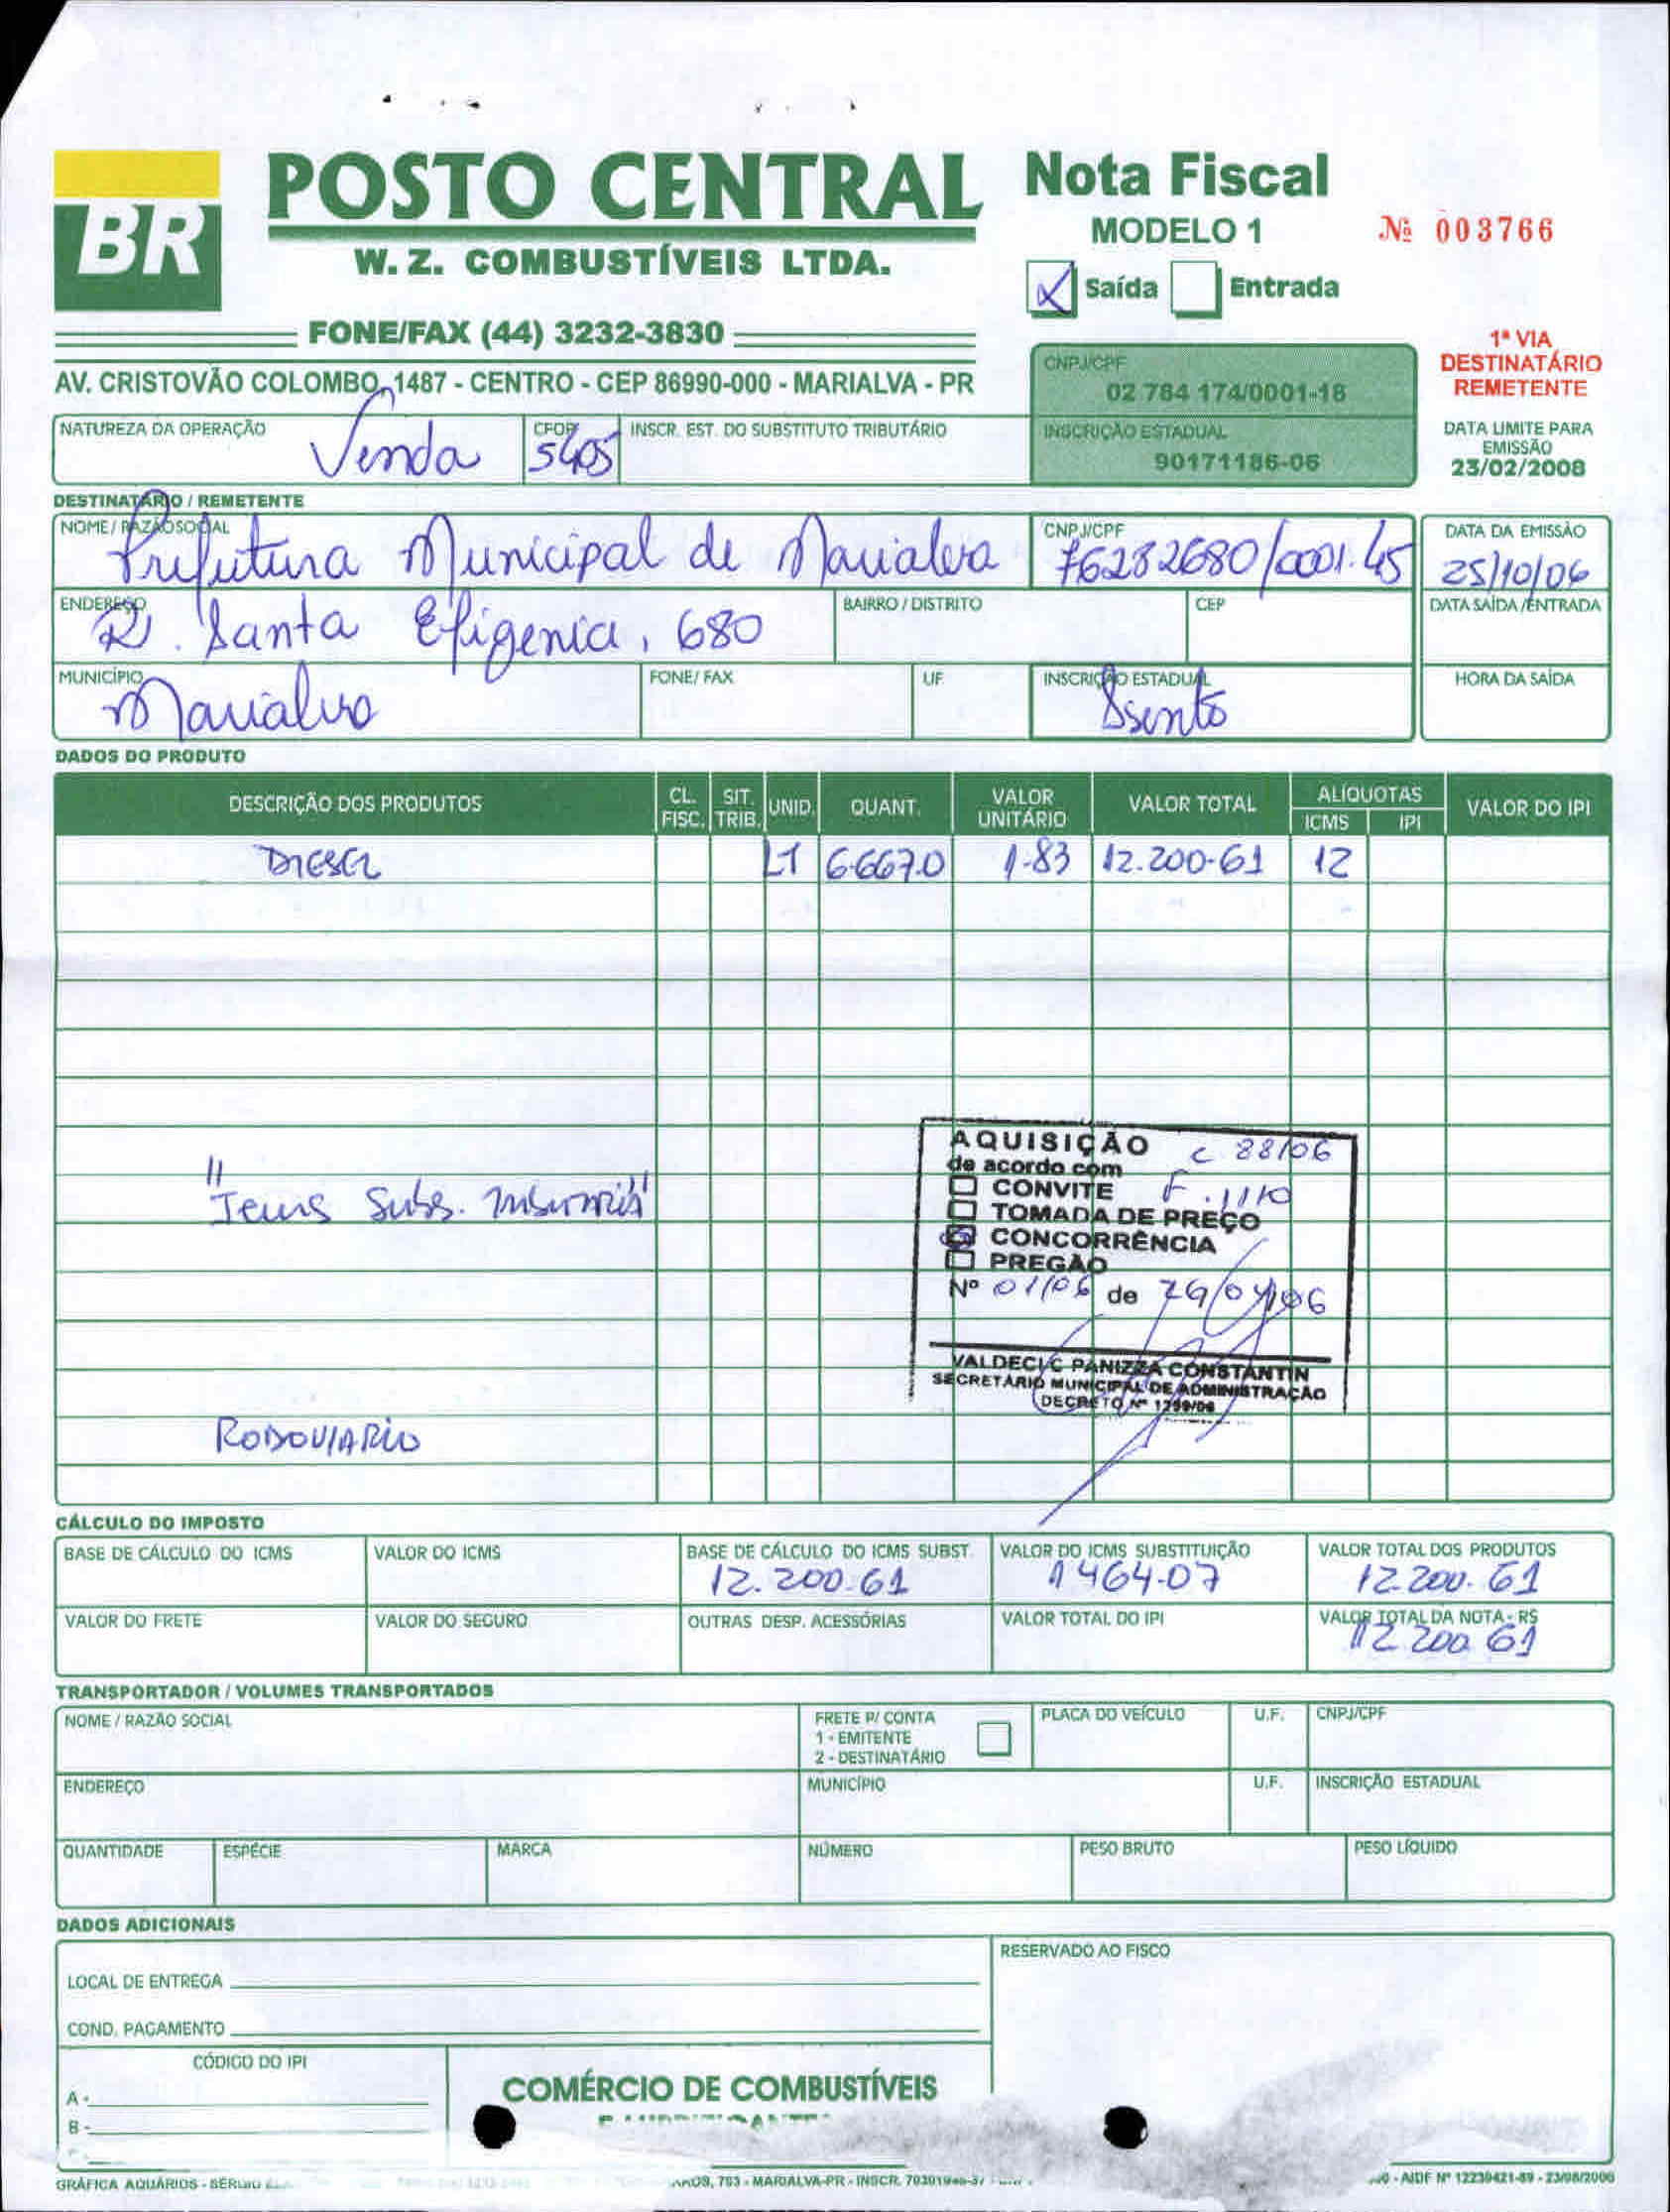 BR
POSTO CENTRAL
W. Z. COMBUSTÍVEIS LTDA.
FONE/FAX (44) 3232-3830
AV. CRISTOVÃO COLOMBO, 1487 - CENTRO - CEP 86990-000 - MARIALVA - PR
Nota Fiscal
MODELO 1
Nº 003766
X Saída Entrada
1ª VIA
DESTINATÁRIO
REMETENTE
CNPJ/CPF
02 784 174/0001-18
INSCRIÇÃO ESTADUAL
90171186-06
DATA LIMITE PARA
EMISSÃO
23/02/2008
NATUREZA DA OPERAÇÃO CFOP INSCR. EST. DO SUBSTITUTO TRIBUTÁRIO
Venda 5405
DESTINATÁRIO / REMETENTE
NOME / RAZÃO SOCIAL CNPJ/CPF DATA DA EMISSÃO
Prefeitura Municipal de Marialva 76282680/0001.45 25/10/06
ENDEREÇO BAIRRO / DISTRITO CEP DATA SAÍDA/ENTRADA
R. Santa Efigenia, 680
MUNICÍPIO FONE/ FAX UF INSCRIÇÃO ESTADUAL HORA DA SAÍDA
Marialva Isento
DADOS DO PRODUTO
DESCRIÇÃO DOS PRODUTOS CL. FISC. SIT. TRIB. UNID. QUANT. VALOR UNITÁRIO VALOR TOTAL ALÍQUOTAS ICMS IPI VALOR DO IPI
DIESEL LT 6.667.0 1.83 12.200.61 12
AQUISIÇÃO C 88/06
de acordo com
CONVITE F.1110
TOMADA DE PREÇO
CONCORRÊNCIA
PREGÃO
Nº 01/06 de
VALDECI C PANIZZA CONSTANTIN
SECRETÁRIO MUNICIPAL DE ADMINISTRAÇÃO
DECRETO Nº
"Icms Subs.
RODOVIARIO
CÁLCULO DO IMPOSTO
BASE DE CÁLCULO DO ICMS VALOR DO ICMS BASE DE CÁLCULO DO ICMS SUBST. VALOR DO ICMS SUBSTITUIÇÃO VALOR TOTAL DOS PRODUTOS
12.200.61 1464.07 12.200.61
VALOR DO FRETE VALOR DO SEGURO OUTRAS DESP. ACESSÓRIAS VALOR TOTAL DO IPI VALOR TOTAL DA NOTA - R$
12.200.61
TRANSPORTADOR / VOLUMES TRANSPORTADOS
NOME / RAZÃO SOCIAL FRETE P/ CONTA PLACA DO VEÍCULO U.F. CNPJ/CPF
1 - EMITENTE
2 - DESTINATÁRIO
ENDEREÇO MUNICÍPIO U.F. INSCRIÇÃO ESTADUAL
QUANTIDADE ESPÉCIE MARCA NÚMERO PESO BRUTO PESO LÍQUIDO
DADOS ADICIONAIS
RESERVADO AO FISCO
LOCAL DE ENTREGA
COND. PAGAMENTO
CÓDIGO DO IPI
A -
B -
COMÉRCIO DE COMBUSTÍVEIS
GRÁFICA AQUÁRIOS - 703 - MARIALVA-PR - INSCR. - AIDF Nº 12239421-89 - 23/08/2006